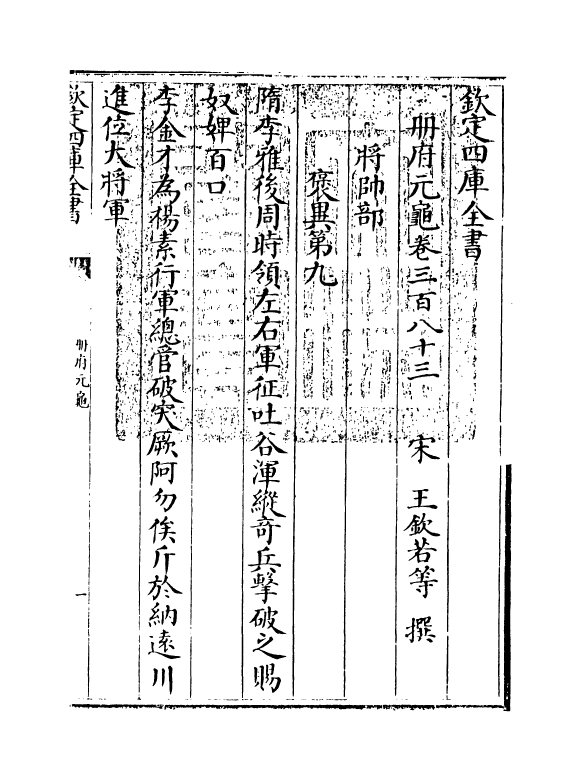 欽定四庫全書
冊府元龜卷三百八十三 宋 王欽若等 撰
將帥部
褒異第九
隋李雅後周時領左右軍征吐谷渾縱奇兵擊破之賜
奴婢百口
李金才為楊素行軍總管破突厥阿勿俟斤於納遠川
進位大將軍
欽定四庫全書
冊府元龜
一